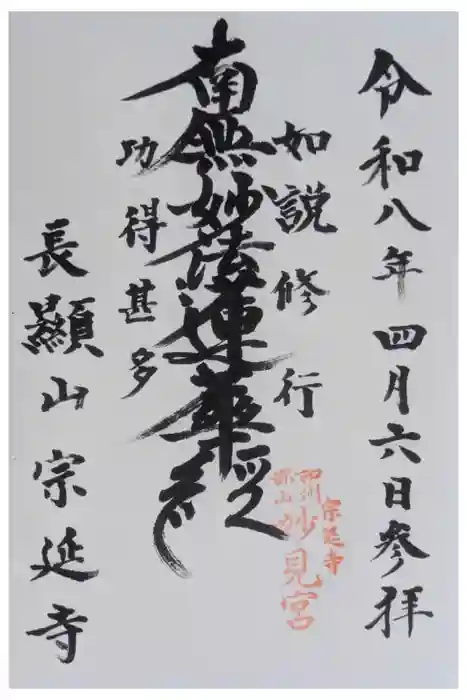 令和八年四月六日参拝
如説修行
南無妙法蓮華経
功得甚多
宗延寺
和州
郡山
妙見宮
長顯山宗延寺